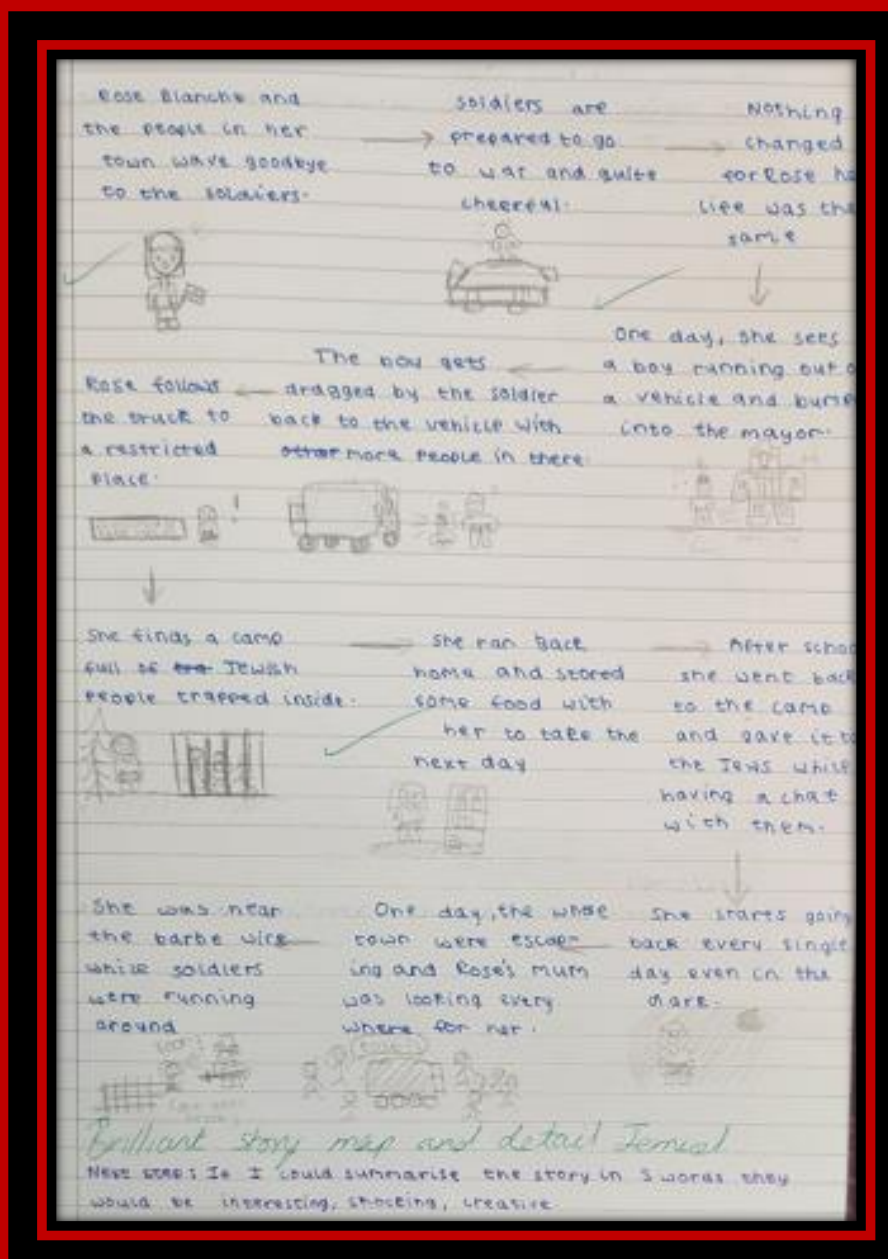 Rose Blanche and
the people in her
town wave goodbye
to the soldiers.
soldiers are
prepared to go
to war and quite
cheereful.
Nothing
changed
for Rose he
life was the
same
One day, she sees
a boy running out o
a vehicle and bume
into the mayor.
The boy gets
dragged by the soldier
back to the vehicle with
other more people in there.
Rose follows
the truck to
a restricted
place.
!
She finds a camp
full of Jewish
people trapped inside.
She ran back
home and stored
some food with
her to take the
next day
After schoo
she went back
to the camp
and gave it to
the Jews while
having a chat
with them.
She starts going
back every single
day even in the
dark.
One day, the whole
town were escap-
ing and Rose's mum
was looking every
where for her.
She was near
the barbe wire
while soldiers
were running
around
Brilliant story map and detail
Next step: If I could summarise the story in 3 words they
would be interesting, shocking, creative